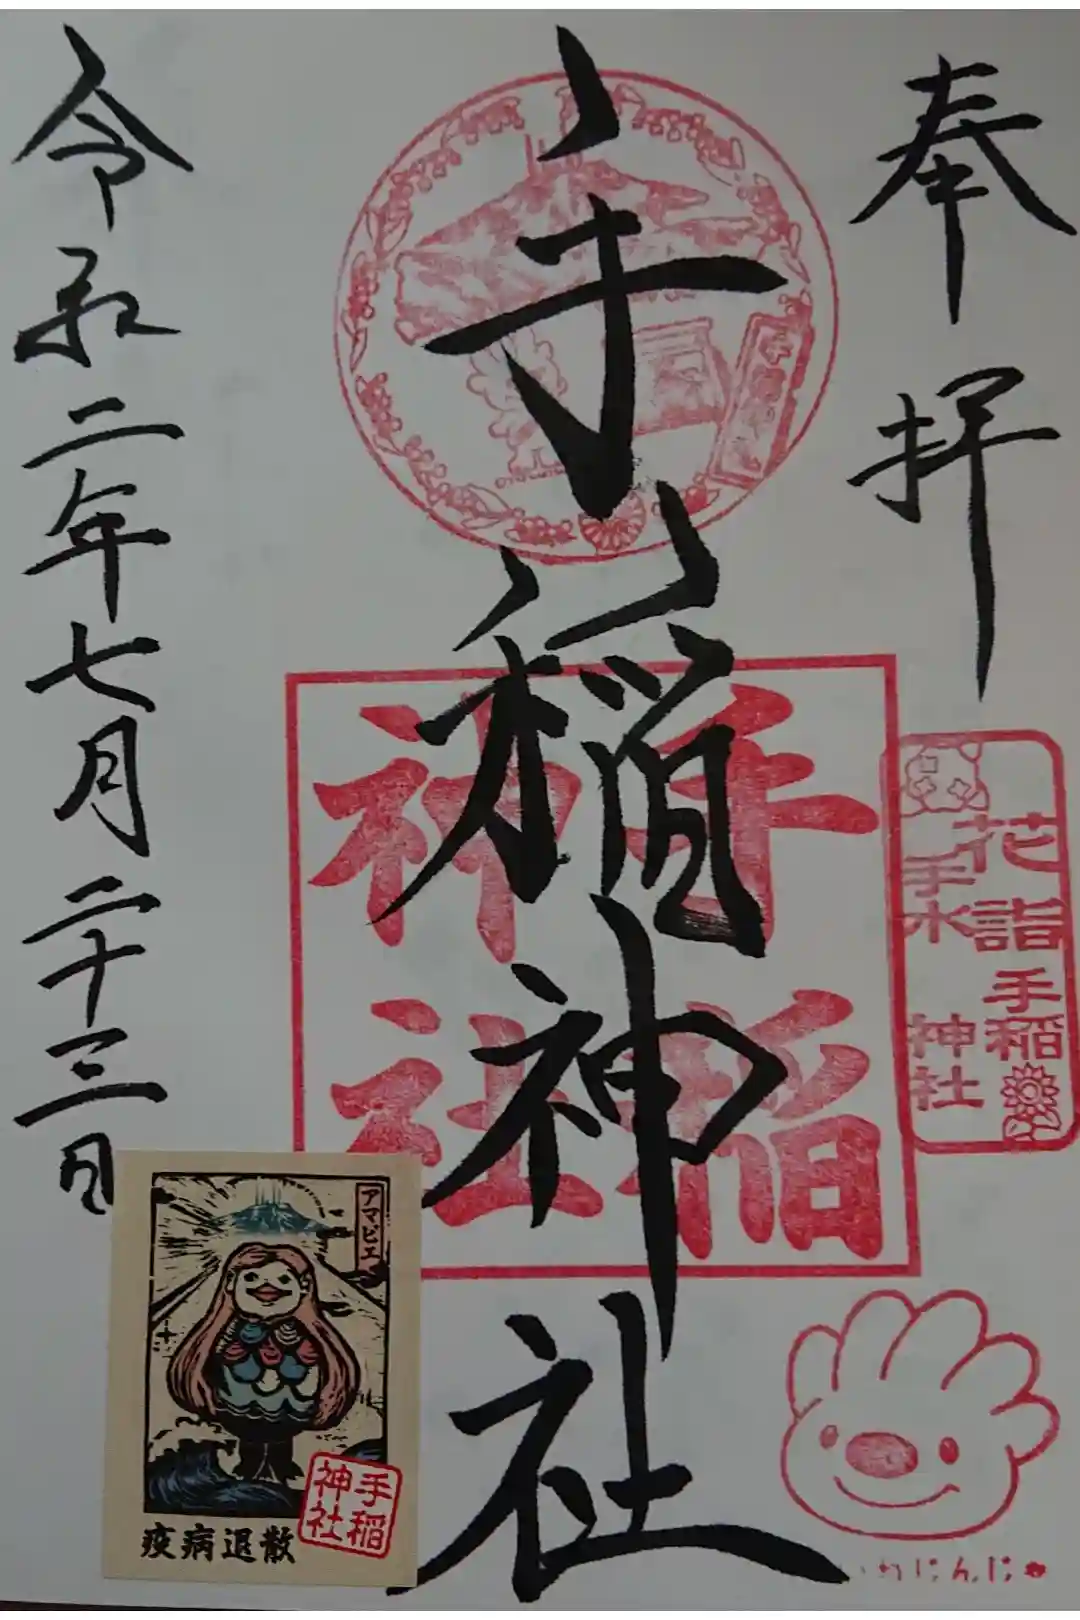 奉拝
手稲神社
令和二年七月二十三日
手稲神社
花詣
手稲
手水
神社
アマビエ
疫病退散
手稲神社